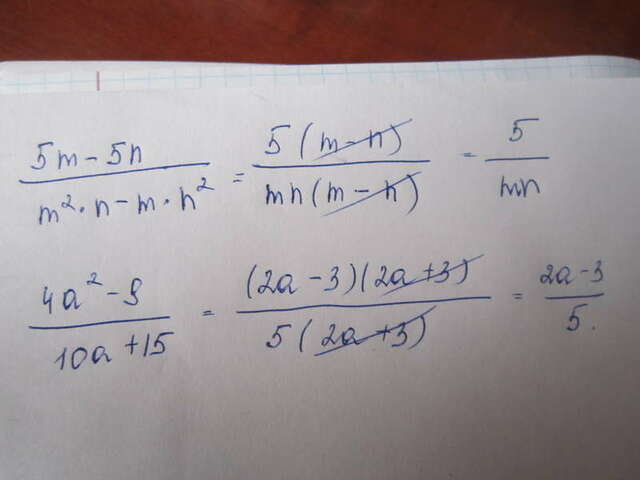 (5m - 5n)/(m²·n - m·n²) = 5(m - n)/(mn(m - n)) = 5/(mn)
(4a² - 9)/(10a + 15) = (2a - 3)(2a + 3)/(5(2a + 3)) = (2a - 3)/5.